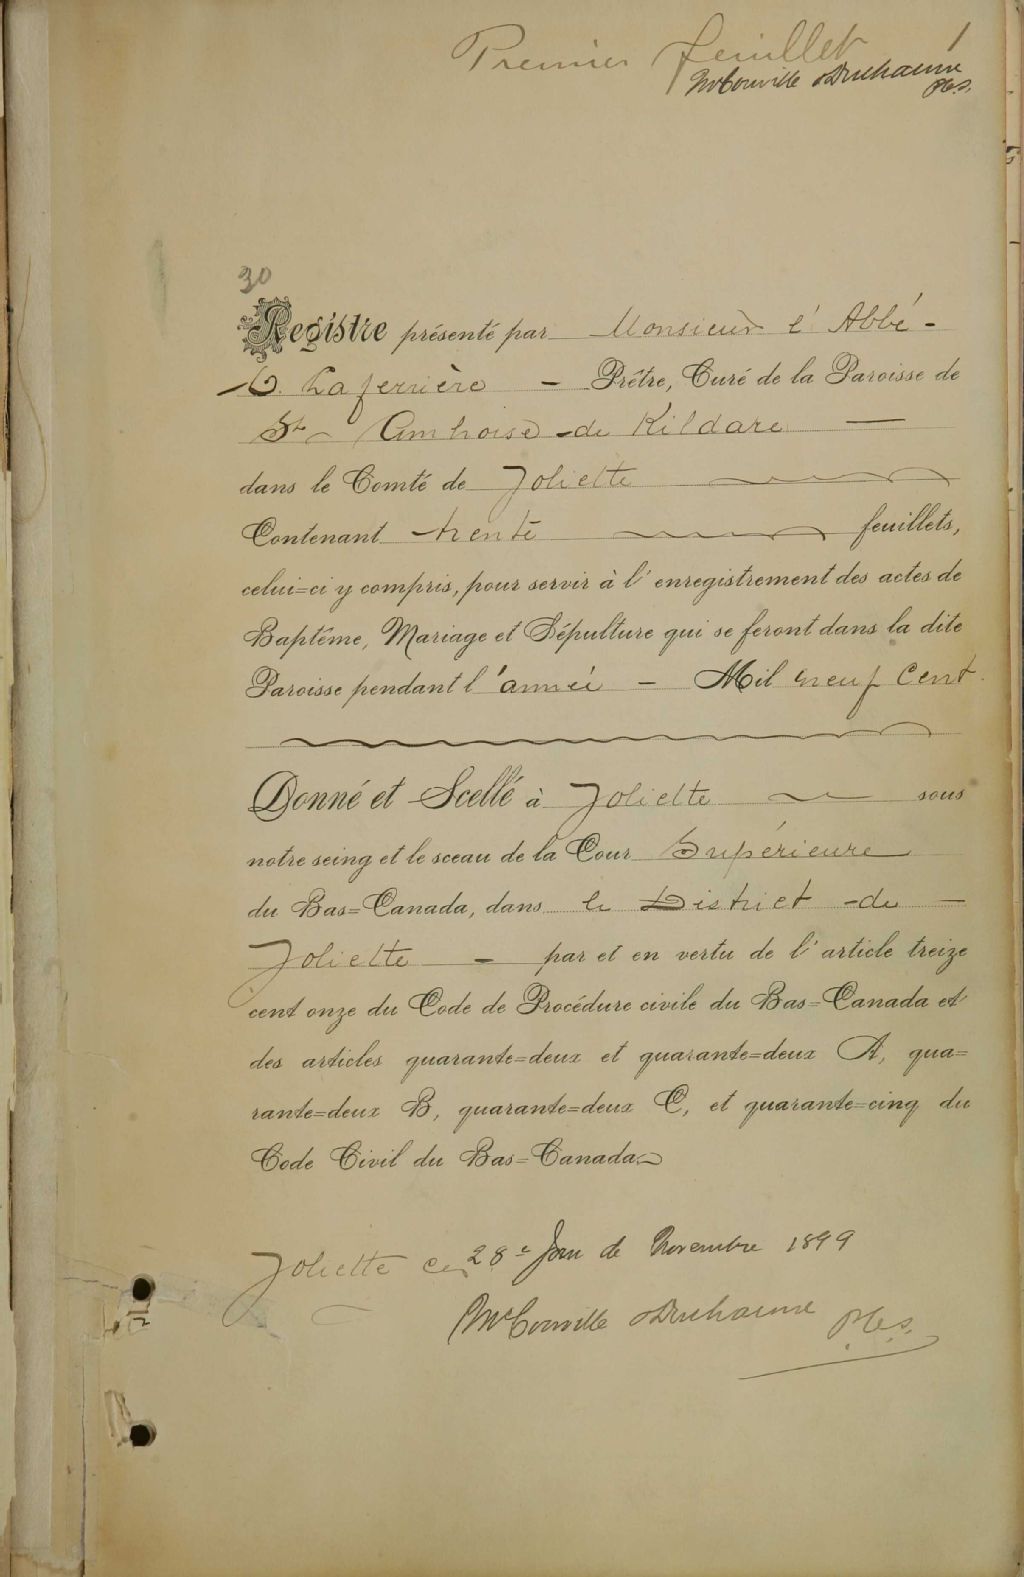 Premier feuillet 1
McConville & Ducharme
P.C.S.
30
Registre présenté par Monsieur l'Abbé -
Laferrière - Prêtre, Curé de la Paroisse de
St Ambroise de Kildare
dans le Comté de Joliette
Contenant trente feuillets,
celui=ci y compris, pour servir à l'enregistrement des actes de
Baptême, Mariage et Sépulture qui se feront dans la dite
Paroisse pendant l'année - Mil neuf Cent
Donné et Scellé à Joliette sous
notre seing et le sceau de la Cour Supérieure
du Bas=Canada, dans le District de -
Joliette - par et en vertu de l'article treize
cent onze du Code de Procédure civile du Bas=Canada et
des articles quarante=deux et quarante=deux A, qua=
rante=deux B, quarante=deux C, et quarante=cinq du
Code Civil du Bas=Canada.
Joliette ce 28e Jour de Novembre 1899
McConville & Ducharme P.C.S.